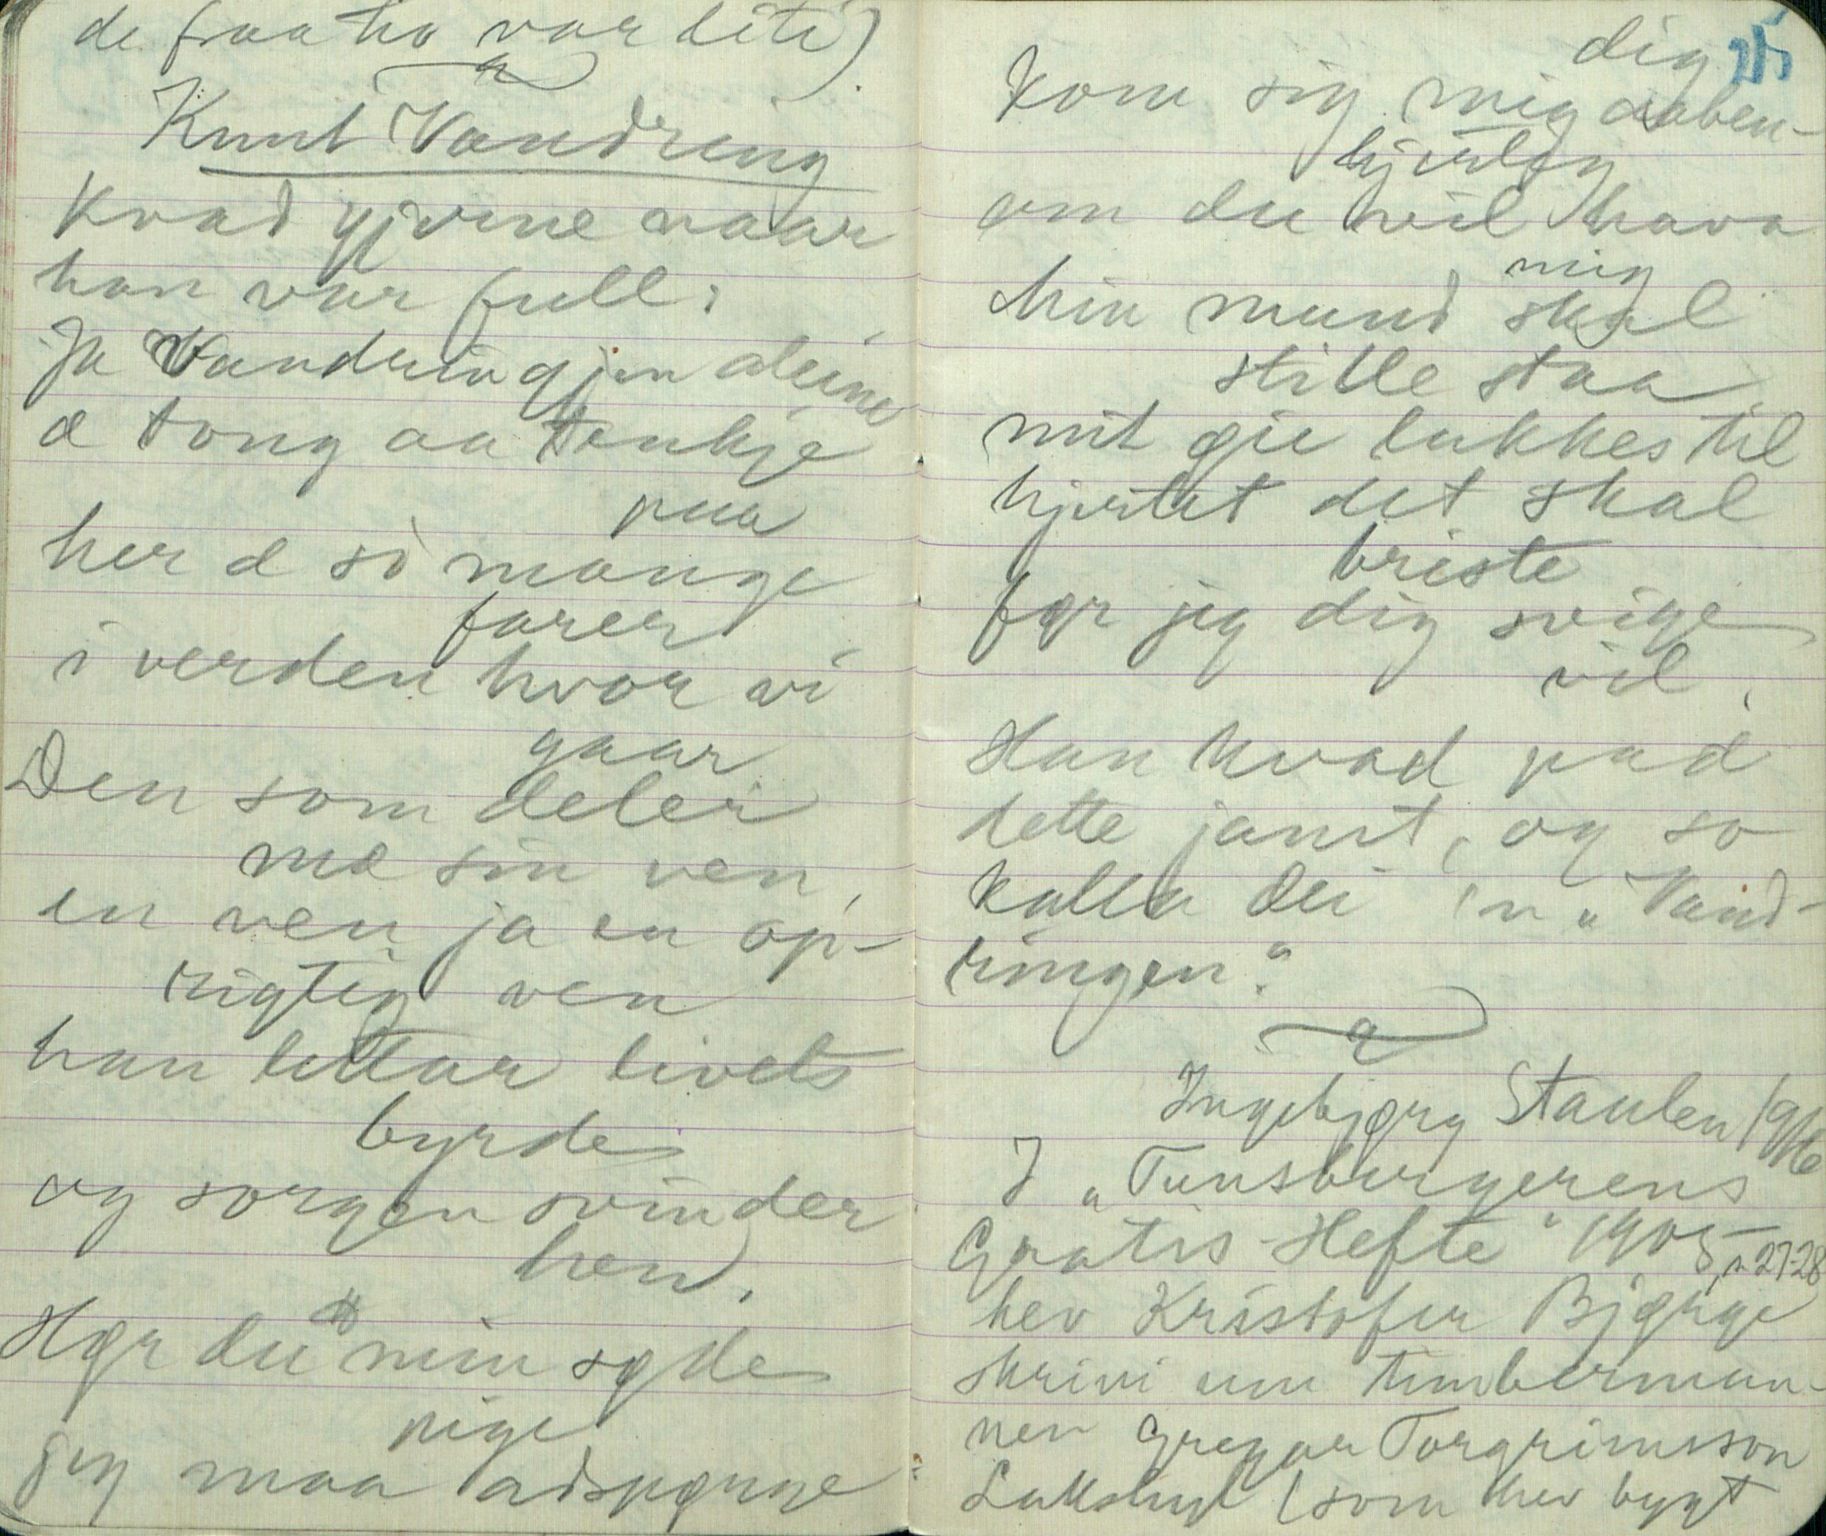 de fraa ho var liti).
Knut Vandring
kvad gjerne naar
han var full:
Ja Vandring jen aleine
æ tong aa tenkje
paa
her æ så mange
farer
i verden hvor vi
gaar
Den som deler
mæ sin ven,
en ven ja en op-
rigtig ven
han lettar livets
byrde
og sorgen svinder
hen.
Hør du min søde
pige
jeg maa adspørge
dig
25
kom sig mig aaben-
hjertig
om du vil hava
mig
Min mund skal
stille staa
mit øie lukkes til
hjertet det skal
briste
før jeg dig svige
vil.
Han kvad pad
dette jamt, og so
kalla dei 'n "Vand-
ringen".
Ingebjørg Staulen 19/6
I "Tunsbergerens
Gratis-Hefte" 1905, n 27-28
hev Kristofer Bjørge
skrivi um timberman-
nen Gregar Torgrimsson
(som hev bygt